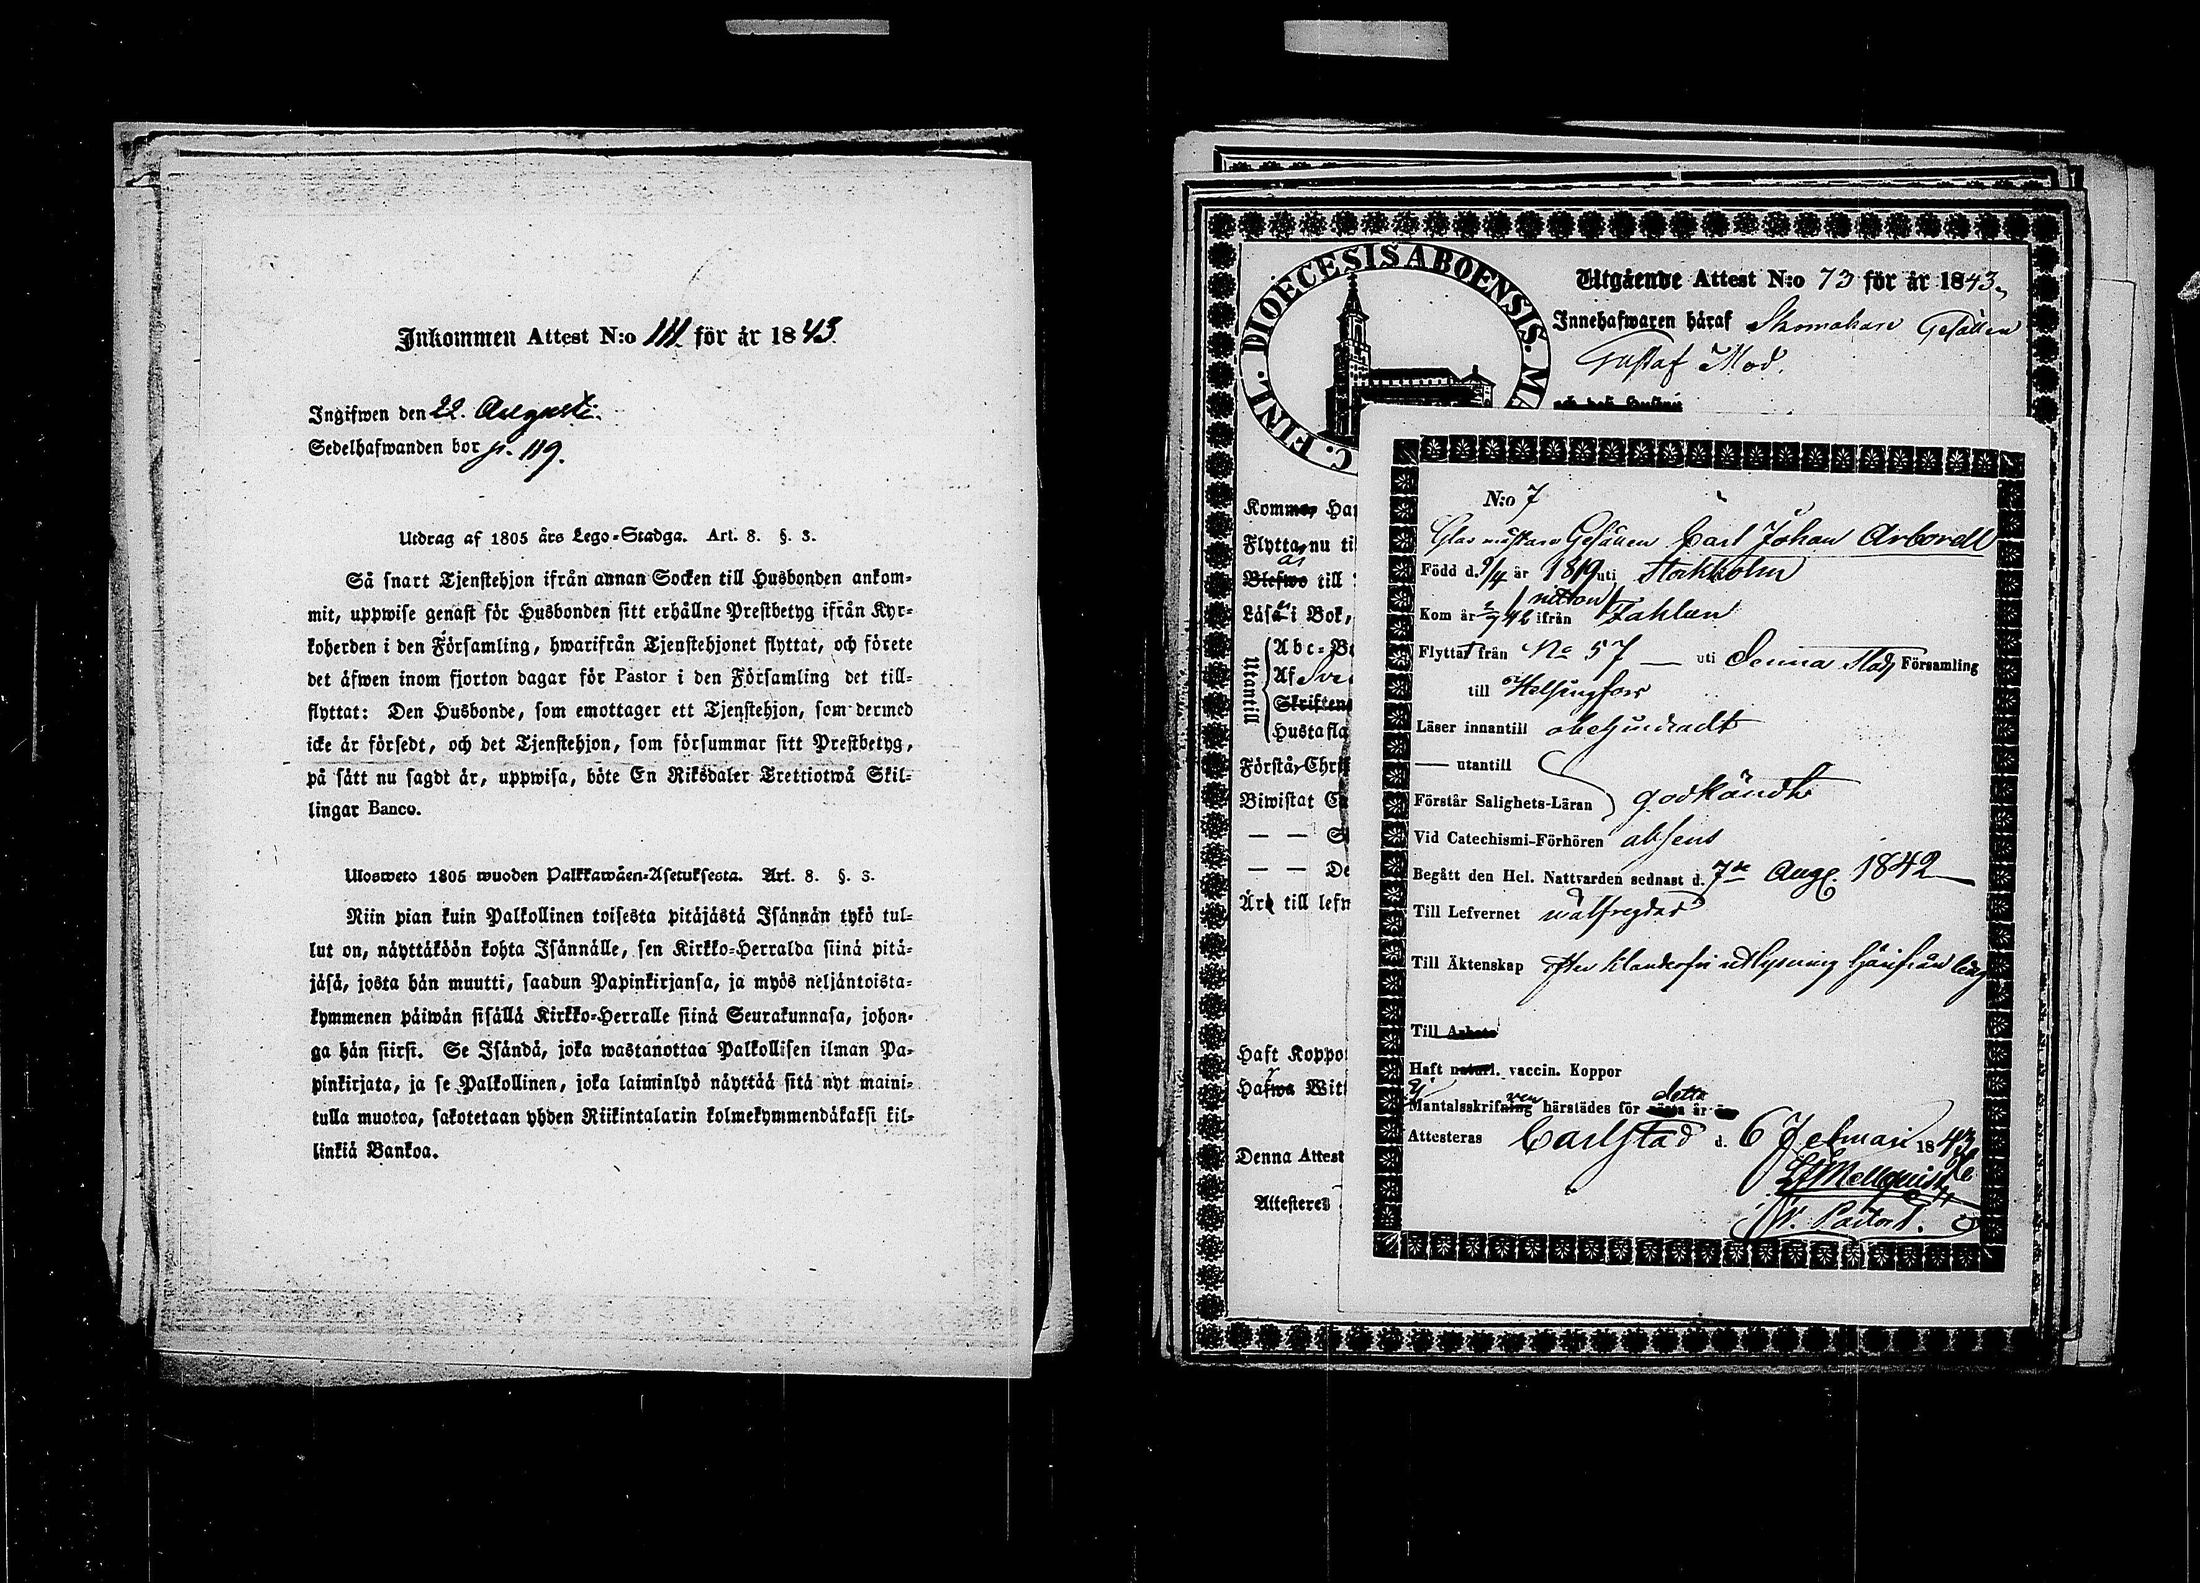 Inkommen Attest N:o 111 för år 1843.
Ingifwen den 22. Augusti.
Sedelhafwanden bor p. 119.
Utdrag af 1805 års Lego-Stadga. Art. 8. §. 3.
Så snart Tjenstehjon ifrån annan Socken till Husbonden ankom-
mit, uppwise genast för Husbonden sitt erhållne Prestbetyg ifrån Kyr-
koherden i den Församling, hwarifrån Tjenstehjonet flyttat, och förete
det äfwen inom fjorton dagar för Pastor i den Församling det till-
flyttat: Den Husbonde, som emottager ett Tjenstehjon, som dermed
icke är försedt, och det Tjenstehjon, som försummar sitt Prestbetyg,
på sätt nu sagdt är, uppwisa, böte En Riksdaler Trettiotwå Skil-
lingar Banco.
Ulosweto 1805 wuoden Palkkawäen-Asetuksesta. Art. 8. §. 3.
Niin pian kuin Palkollinen toisesta pitäjästä Isännän tykö tul-
lut on, näyttäköön kohta Isännälle, sen Kirkko-Herralda siinä pitä-
jäsä, josta hän muutti, saadun Papinkirjansa, ja myös neljäntoista-
kymmenen päiwän sisällä Kirkko-Herralle siinä Seurakunnasa, johon-
ga hän siirsi. Se Isändä, joka wastanottaa Palkollisen ilman Pa-
pinkirjata, ja se Palkollinen, joka laiminlyö näyttää sitä nyt maini-
tulla muotoa, sakotetaan yhden Riikintalarin kolmekymmendäkaksi kil-
linkiä Bankoa.
C. FINL. DIOECESIS ABOENSIS. MA
Utgående Attest N:o 73 för år 1843,
Innehafwaren häraf Skomakare Gesällen
Gustaf Mod.
och dess hustru
Komme Har
Flytta nu ti
Blefwo till
Läsa i Bok,
Utantill
Abc-B
Af Sve
Skriftens
Hustafla
Förstå Chri
Biwistat C
— — S
— — De
Är till lefn
Haft Koppo
Hafwa Wit
Denna Attest
Attesteres
N:o 7
Glasmästare Gesällen Carl Johan Arborell
Född d. 9/4 år 1819 uti Stockholm
nitton
Kom år 42 ifrån Fahlun
Flyttat från No 57 — uti Denna Stads Församling
till Helsingfors
Läser innantill obehindradt
— utantill
Förstår Salighets-Läran godkändt
Vid Catechismi-Förhören absens
Begått den Hel. Nattvarden sednast d. 7de Aug. 1842
Till Lefvernet wälfregdad
Till Äktenskap efter klanderfri utlysning härifrån ledig
Till Arbete
Haft naturl. vaccin. Koppor
Ej ven detta
Mantalsskrifning härstädes för nästa år är
Attesteras Carlstad d. 6 Februari 1843
Mellquist
V. Pastor